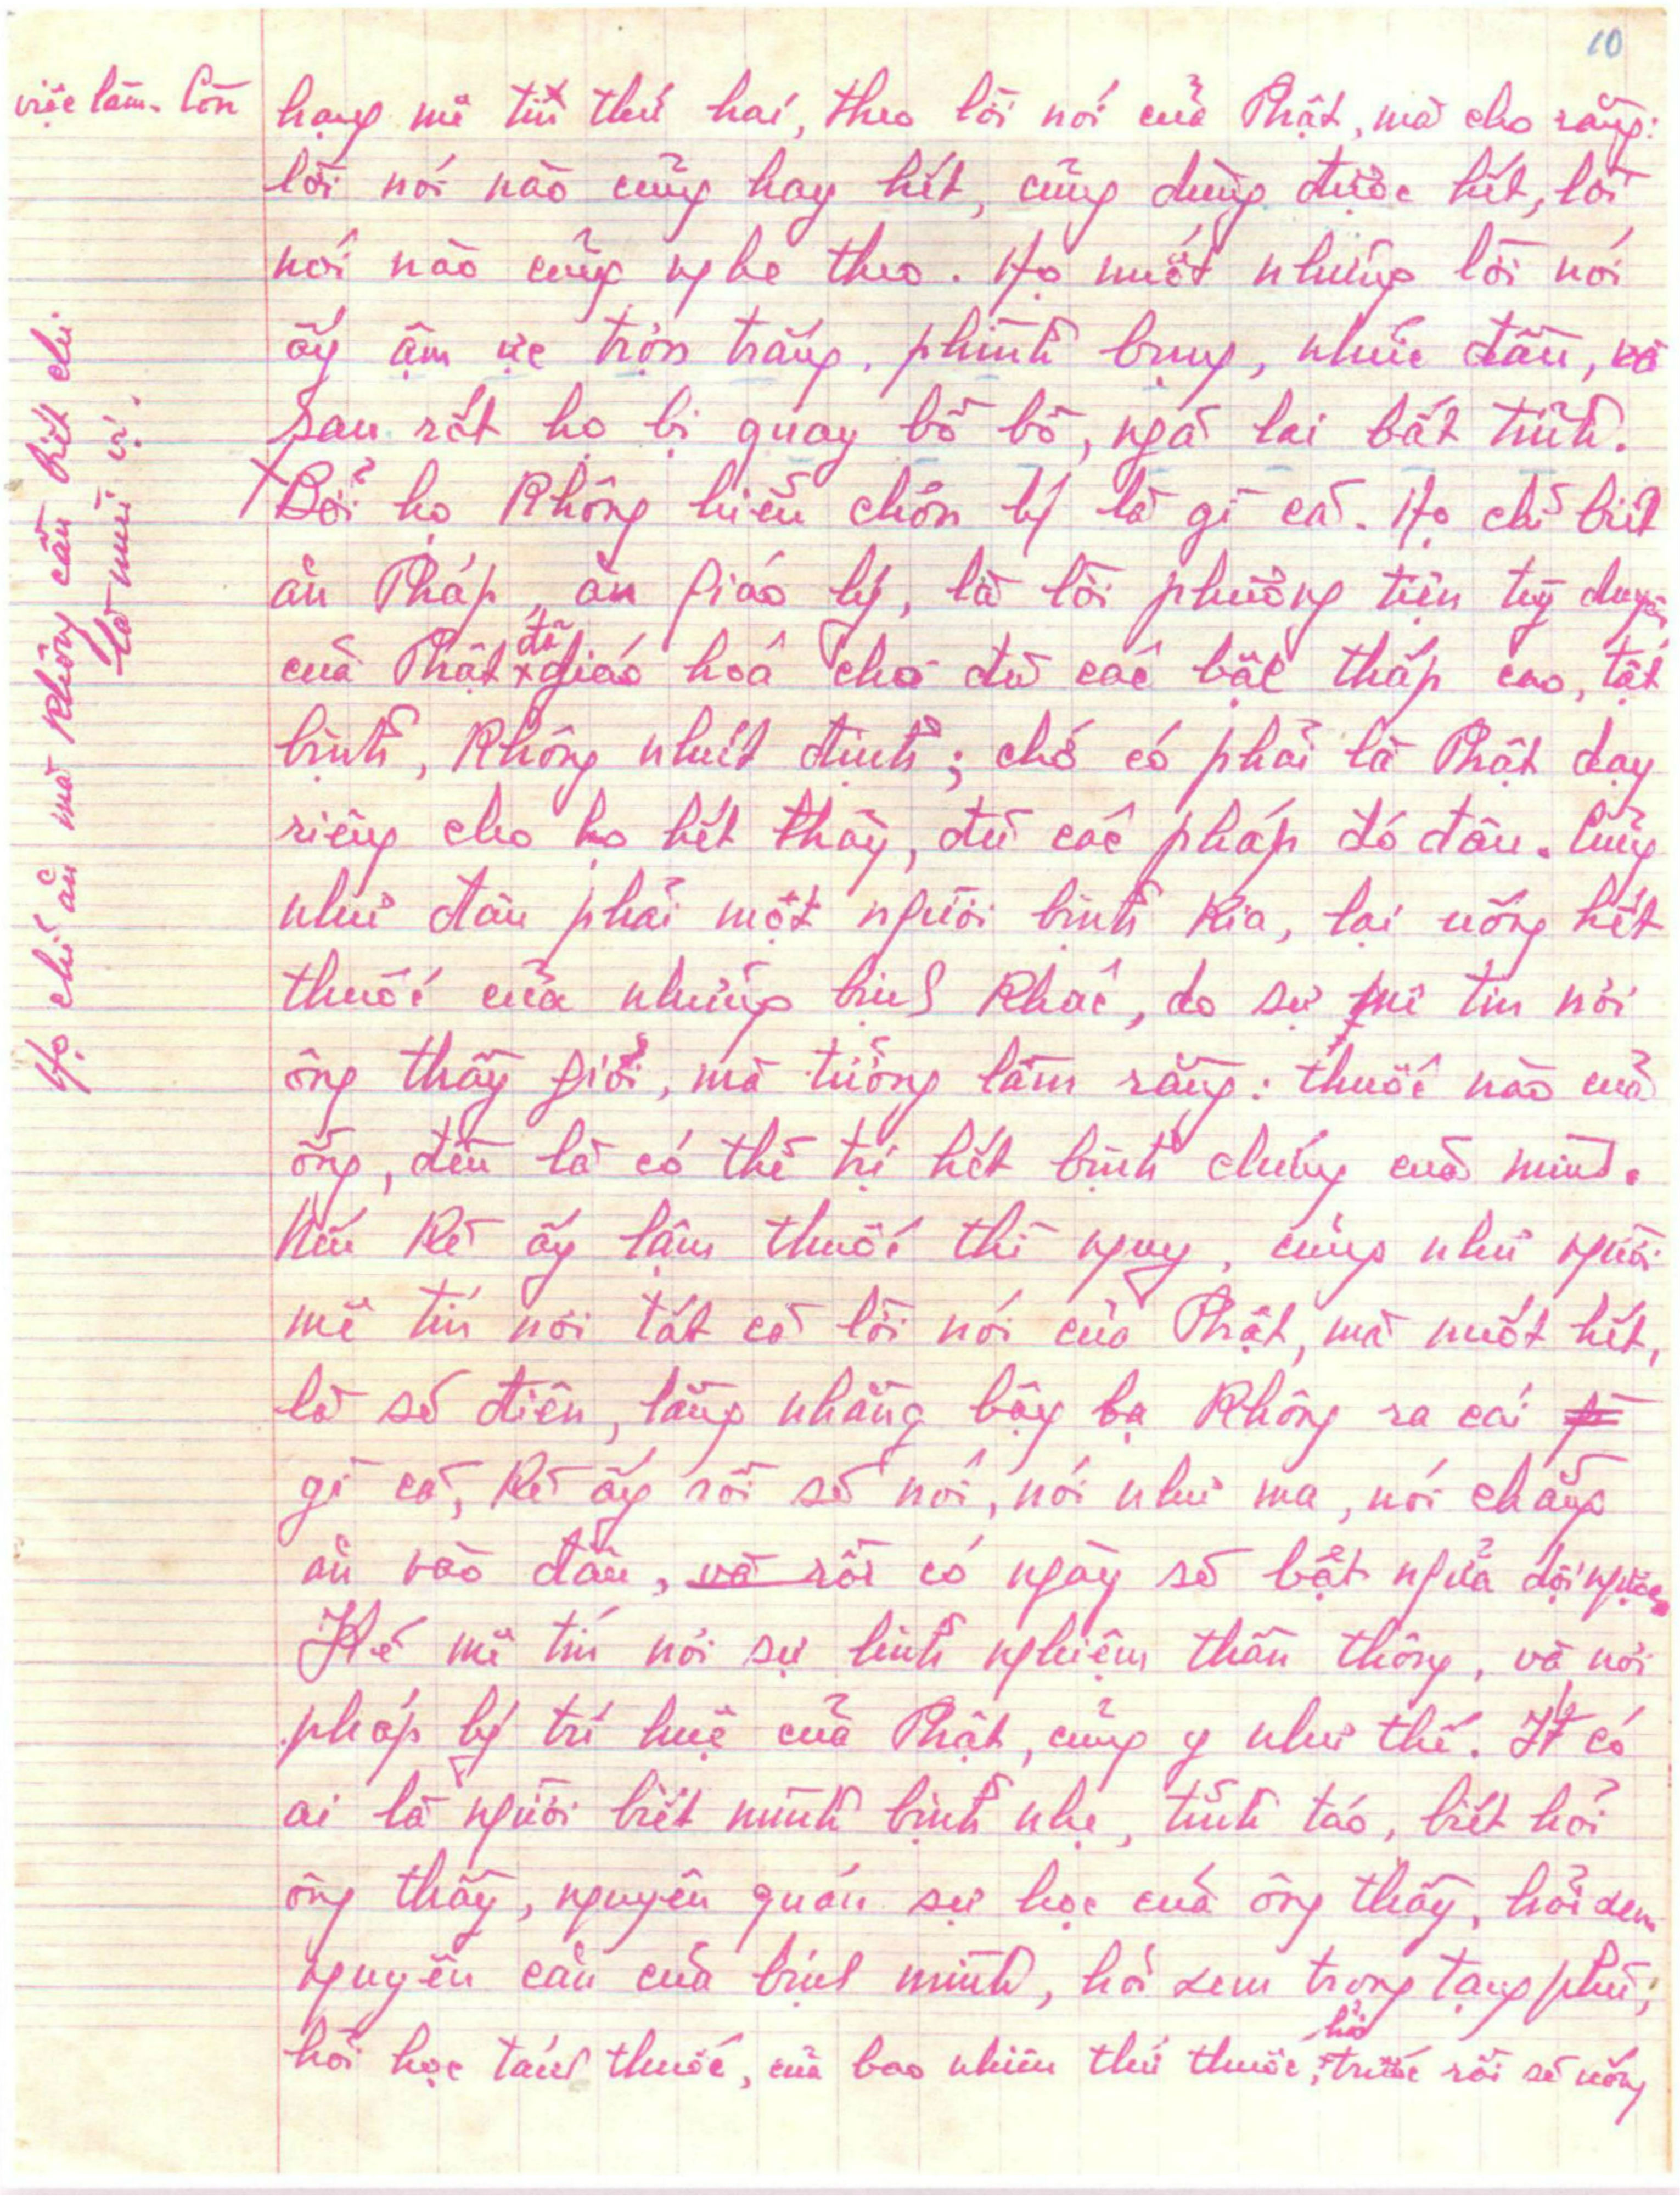 10
việc làm. Còn hạng mê tín thứ hai, theo lời nói của Phật, mà cho rằng:
lời nói nào cũng hay hết, cũng dùng được hết, lời
nói nào cũng nghe theo. Họ nuốt những lời nói
ấy ậm ực trọn trặng, phình bụng, nhức đầu, và
sau rốt họ bị quay bồ bồ, ngã lại bất tỉnh.
Bởi họ không hiểu chơn lý là gì cả. Họ chỉ biết
ăn Pháp, ăn giáo lý, là lời phương tiện tùy duyên
của Phật để giáo hoá cho đủ các bậc thấp cao, tật
bịnh, không nhứt định; chớ có phải là Phật dạy
riêng cho họ hết thảy, đủ các pháp đó đâu. Cũng
như đâu phải một người bịnh kia, lại uống hết
thuốc của những bịnh khác, do sự mê tín nơi
ông thầy giỏi, mà tưởng lầm rằng: thuốc nào của
ổng, đều là có thể trị hết bịnh chứng của mình.
Nếu kẻ ấy lậm thuốc thì nguy, cũng như người
mê tín nơi tất cả lời nói của Phật, mà nuốt hết,
là sẽ điên, lăng nhăng bậy bạ không ra cái
gì cả, kẻ ấy rồi sẽ nói, nói như ma, nói chẳng
ăn vào đâu, và rồi có ngày sẽ bật ngửa dội ngược.
Kẻ mê tín nơi sự linh nghiệm thần thông, và nơi
pháp lý trí huệ của Phật, cũng y như thế. Ít có
ai là người biết mình bịnh nhẹ, tỉnh táo, biết hỏi
ông thầy, nguyên quán sự học của ông thầy, hỏi xem
nguyên căn của bịnh mình, hỏi xem trong tạng phủ,
hỏi học tánh thuốc, của bao nhiêu thứ thuốc, hỏi trước rồi sẽ uống
Họ chỉ ăn mà không cần biết chi
là mùi vị.